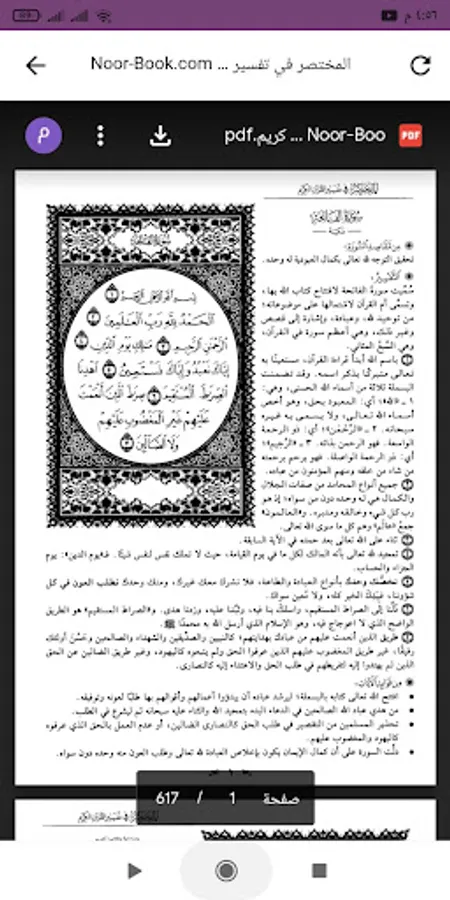 ٤:٥٦ م
المختصر في تفسير ... Noor-Book.com
Noor-Boo ... كريم.pdf
PDF
م
المختصر في تفسير القرآن الكريم
سورة الفاتحة
مكية
من مقاصد السورة:
تحقيق التوجه لله تعالى بكمال العبودية له وحده.
التفسير:
سُمِّيت سورة الفاتحة لافتتاح كتاب الله بها،
وتسمى أم القرآن لاشتمالها على موضوعاته؛
من توحيد لله، وعبادة، وإشارة إلى قصص
وغير ذلك، وهي أعظم سورة في القرآن،
وهي السَّبع المثاني.
١ باسم الله أبدأ قراءة القرآن، مستعينًا به
تعالى متبركًا بذكر اسمه. وقد تضمنت
البسملة ثلاثة من أسماء الله الحسنى، وهي:
١ ـ «الله»؛ أي: المعبود بحق، وهو أخص
أسماء الله تعالى، ولا يسمى به غيره
سبحانه. ٢ ـ «الرَّحْمٰن»؛ أي: ذو الرحمة
الواسعة. فهو الرحمن بذاته. ٣ ـ «الرَّحِيم»؛
أي: ذو الرحمة الواصلة. فهو يرحم برحمته
من شاء من خلقه ومنهم المؤمنون من عباده.
٢ جميع أنواع المحامد من صفات الجلال
والكمال هي له وحده دون من سواه؛ إذ هو
رب كل شيء وخالقه ومدبره. و«العالمون»
جمع «عالَم» وهم كل ما سوى الله تعالى.
سورة الفاتحة
بِسْمِ اللَّهِ الرَّحْمَٰنِ الرَّحِيمِ ١
الْحَمْدُ لِلَّهِ رَبِّ الْعَالَمِينَ ٢
الرَّحْمَٰنِ الرَّحِيمِ ٣ مَالِكِ يَوْمِ الدِّينِ ٤
إِيَّاكَ نَعْبُدُ وَإِيَّاكَ نَسْتَعِينُ ٥ اهْدِنَا
الصِّرَاطَ الْمُسْتَقِيمَ ٦ صِرَاطَ الَّذِينَ أَنْعَمْتَ
عَلَيْهِمْ غَيْرِ الْمَغْضُوبِ عَلَيْهِمْ
وَلَا الضَّالِّينَ ٧
٣ ثناء على الله تعالى بعد حمده في الآية السابقة.
٤ تمجيد لله تعالى بأنه المالك لكل ما في يوم القيامة، حيث لا تملك نفس لنفس شيئًا. فـ«يوم الدين»: يوم
الجزاء والحساب.
٥ نخصُّك وحدك بأنواع العبادة والطاعة، فلا نشرك معك غيرك، ومنك وحدك نطلب العون في كل
شؤوننا، فبيدك الخير كله، ولا مُعين سواك.
٦ دُلَّنا إلى الصراط المستقيم، واسلك بنا فيه، وثبِّتنا عليه، وزدنا هدى. و«الصراط المستقيم» هو الطريق
الواضح الذي لا اعوجاج فيه، وهو الإسلام الذي أرسل الله به محمدًا ﷺ.
٧ طريق الذين أنعمت عليهم من عبادك بهدايتهم؛ كالنبيين والصِّدِّيقين والشهداء والصالحين وحَسُن أولئك
رفيقًا، غير طريق المغضوب عليهم الذين عرفوا الحق ولم يتبعوه كاليهود، وغير طريق الضالين عن الحق
الذين لم يهتدوا إليه لتفريطهم في طلب الحق والاهتداء إليه كالنصارى.
من فوائد الآيات:
• افتتح الله تعالى كتابه بالبسملة؛ ليرشد عباده أن يبدؤوا أعمالهم وأقوالهم بها طلبًا لعونه وتوفيقه.
• من هدي عباد الله الصالحين في الدعاء البدء بتمجيد الله والثناء عليه سبحانه ثم ليشرع في الطلب.
• تحذير المسلمين من التقصير في طلب الحق كالنصارى الضالين، أو عدم العمل بالحق الذي عرفوه
كاليهود والمغضوب عليهم.
• دلَّت السورة على أن كمال الإيمان يكون بإخلاص العبادة لله تعالى وطلب العون منه وحده دون سواه.
صفحة 1 / 617
المختصر في تفسير القرآن الكريم